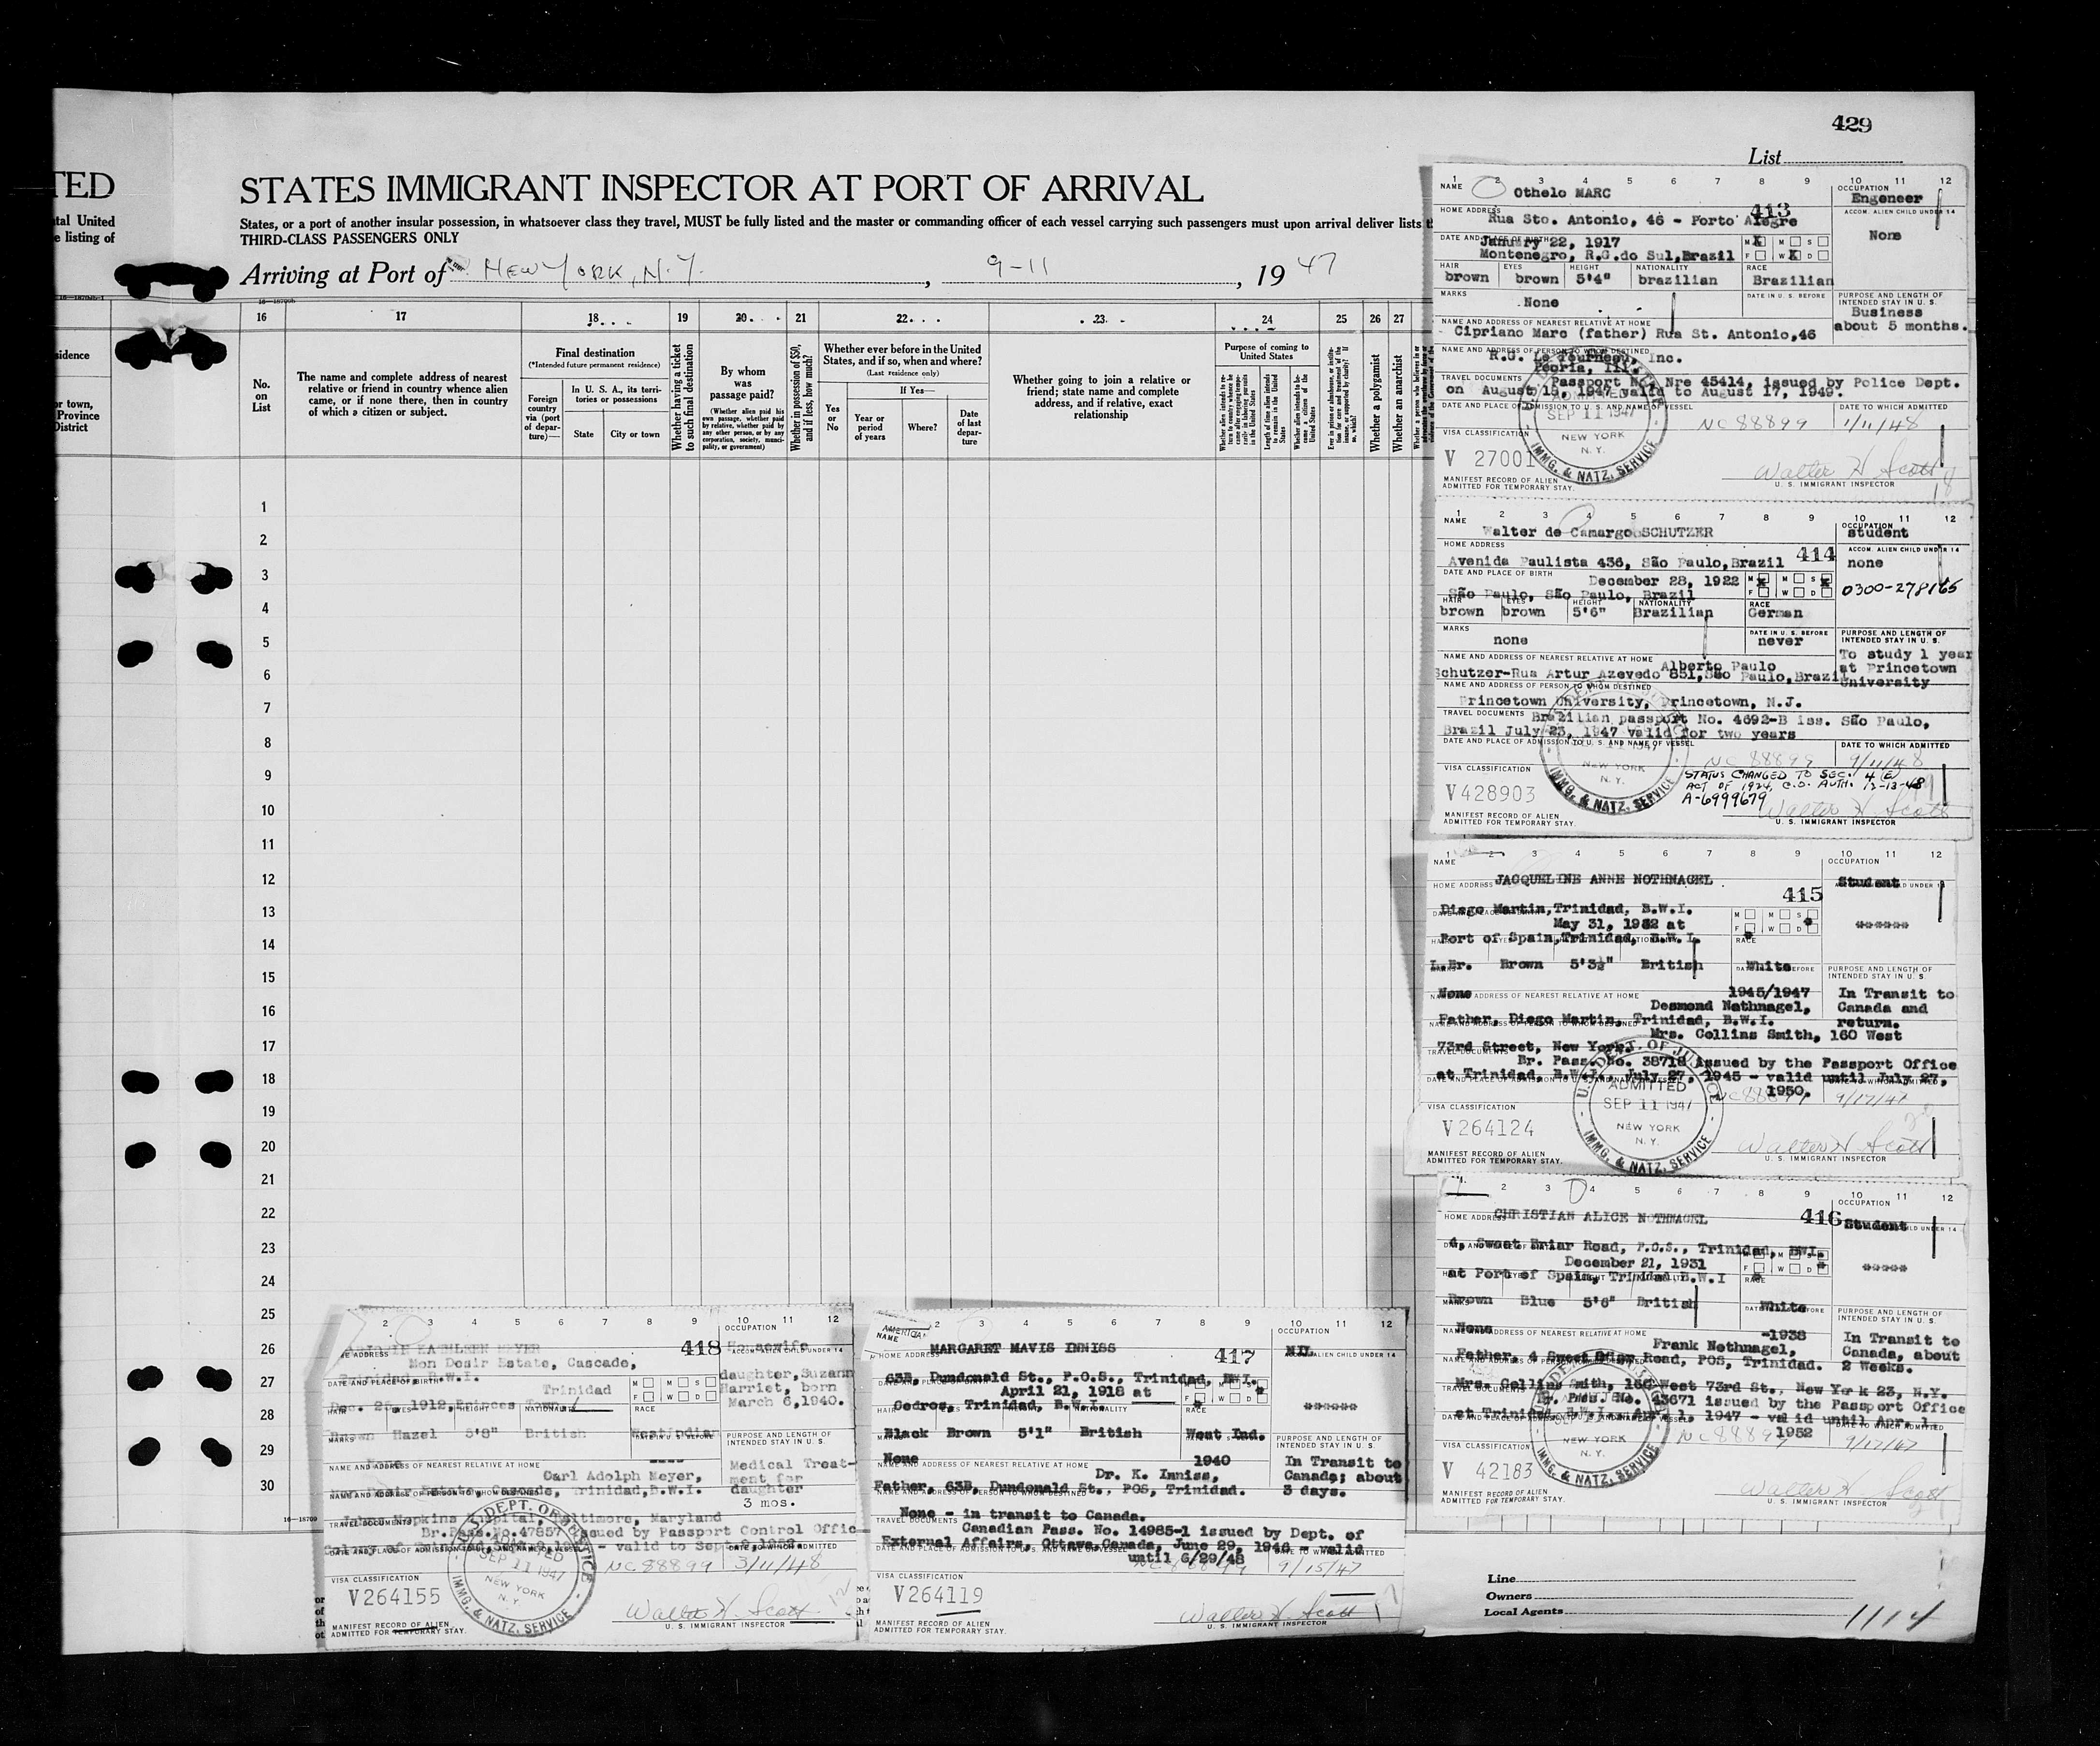 429
List
TED
STATES IMMIGRANT INSPECTOR AT PORT OF ARRIVAL
tal United
e listing of
States, or a port of another insular possession, in whatsoever class they travel, MUST be fully listed and the master or commanding officer of each vessel carrying such passengers must upon arrival deliver lists
THIRD-CLASS PASSENGERS ONLY
Arriving at Port of NEW YORK, N.Y. , 9-11 , 19 47
16 17 18 19 20 21 22 23 24 25 26 27
sidence
or town,
Province
District
No. on List
The name and complete address of nearest relative or friend in country whence alien came, or if none there, then in country of which a citizen or subject.
Final destination
(*Intended future permanent residence)
Foreign country via (port of departure)—
In U. S. A., its territories or possessions
State
City or town
Whether having a ticket to such final destination
By whom was passage paid?
(Whether alien paid his own passage, whether paid by relative, whether paid by any other person, or by any corporation, society, municipality, or government)
Whether in possession of $50, and if less, how much?
Whether ever before in the United States, and if so, when and where?
(Last residence only)
Yes or No
If Yes—
Year or period of years
Where?
Date of last departure
Whether going to join a relative or friend; state name and complete address, and if relative, exact relationship
Purpose of coming to United States
Length of time alien intends to remain in the United States
Whether alien intends to become a citizen of the United States
Whether a polygamist
Whether an anarchist
1
2
3
4
5
6
7
8
9
10
11
12
13
14
15
16
17
18
19
20
21
22
23
24
25
26
27
28
29
30
1 2 3 4 5 6 7 8 9 10 11 12
NAME Othelo MARC
OCCUPATION Engeneer
413
HOME ADDRESS Rua Sto. Antonio, 46 - Porto Alegre
ACCOM. ALIEN CHILD UNDER 14 None
DATE AND PLACE OF BIRTH January 22, 1917
Montenegro, R.G.do Sul,Brazil
M X M S
F W X D
HAIR EYES HEIGHT NATIONALITY RACE
brown brown 5'4" brazilian Brazilian
MARKS None
DATE IN U. S. BEFORE
PURPOSE AND LENGTH OF INTENDED STAY IN U. S.
Business
about 5 months.
NAME AND ADDRESS OF NEAREST RELATIVE AT HOME
Cipriano Marc (father) Rua St. Antonio,46
NAME AND ADDRESS OF PERSON TO WHOM DESTINED
R.G. Le Tourneau, Inc.
Peoria, Ill.
TRAVEL DOCUMENTS Passport No. Nre 45414, issued by Police Dept.
on August 18, 1947 valid to August 17, 1949.
DATE AND PLACE OF ADMISSION TO U. S. AND NAME OF VESSEL
DATE TO WHICH ADMITTED
SEP 11 1947
NEW YORK
N. Y.
IMMG. & NATZ. SERVICE
NC 88899 1/11/48
VISA CLASSIFICATION
V 27001
Walter H Scott
MANIFEST RECORD OF ALIEN
ADMITTED FOR TEMPORARY STAY.
U. S. IMMIGRANT INSPECTOR
1 2 3 4 5 6 7 8 9 10 11 12
NAME Walter de Camargo SCHUTZER
OCCUPATION student
HOME ADDRESS
414
Avenida Paulista 436, São Paulo,Brazil
ACCOM. ALIEN CHILD UNDER 14
none
DATE AND PLACE OF BIRTH December 28, 1922
São Paulo, São Paulo, Brazil
0300-278165
HAIR EYES HEIGHT NATIONALITY RACE
brown brown 5'6" Brazilian German
MARKS none
DATE IN U. S. BEFORE never
PURPOSE AND LENGTH OF INTENDED STAY IN U. S.
To study 1 year
at Princetown
University
NAME AND ADDRESS OF NEAREST RELATIVE AT HOME Alberto Paulo
Schutzer-Rua Artur Azevedo 851,São Paulo,Brazil
NAME AND ADDRESS OF PERSON TO WHOM DESTINED
Princetown University, Princetown, N.J.
TRAVEL DOCUMENTS Brazilian passport No. 4692-B iss. São Paulo,
Brazil July 23, 1947 valid for two years
DATE AND PLACE OF ADMISSION TO U. S. AND NAME OF VESSEL
DATE TO WHICH ADMITTED
NEW YORK
N. Y.
IMMG. & NATZ. SERVICE
NC 88899 9/11/48
VISA CLASSIFICATION
STATUS CHANGED TO SEC. 4 (E)
ACT OF 1924, C.O. AUTH. 12-13-48
A-6999679
V428903
Walter H Scott
MANIFEST RECORD OF ALIEN
ADMITTED FOR TEMPORARY STAY.
U. S. IMMIGRANT INSPECTOR
1 2 3 4 5 6 7 8 9 10 11 12
NAME
OCCUPATION
HOME ADDRESS JACQUELINE ANNE NOTHNAGEL
Student
415
Diego Martin,Trinidad, B.W.I.
May 31, 1932 at
Port of Spain,Trinidad, B.W.I.
******
RACE
L.Br. Brown 5'3½" British White
PURPOSE AND LENGTH OF INTENDED STAY IN U. S.
None
1945/1947
NAME AND ADDRESS OF NEAREST RELATIVE AT HOME
Desmond Nothnagel,
Father, Diego Martin, Trinidad, B.W.I.
In Transit to
Canada and
return.
Mrs. Collins Smith, 160 West
73rd Street, New York.
Br. Pass. No. 38718 issued by the Passport Office
at Trinidad, B.W.I., July 27, 1945 - valid until July 27,
1950.
U. S. DEPT. OF JUSTICE
ADMITTED
SEP 11 1947
NEW YORK
N. Y.
IMMG. & NATZ. SERVICE
NC88899 9/17/47
VISA CLASSIFICATION
V264124
Walter H Scott
MANIFEST RECORD OF ALIEN
ADMITTED FOR TEMPORARY STAY.
U. S. IMMIGRANT INSPECTOR
2 3 4 5 6 7 8 9 10 11 12
OCCUPATION
HOME ADDRESS CHRISTIAN ALICE NOTHNAGEL
416
Student
4, Sweet Briar Road, P.O.S., Trinidad, BWI.
December 21, 1931
at Port of Spain, Trinidad B.W.I
*****
Brown Blue 5'6" British White
PURPOSE AND LENGTH OF INTENDED STAY IN U. S.
None
-1938
NAME AND ADDRESS OF NEAREST RELATIVE AT HOME
Frank Nothnagel,
Father, 4 Sweet Briar Road, POS, Trinidad.
In Transit to
Canada, about
2 weeks.
Mrs. Collins Smith, 160 West 73rd St., New York 23, N.Y.
Br. Pass. No. 43671 issued by the Passport Office
at Trinidad, B.W.I., Apr. 1, 1947 - valid until Apr. 1,
1952
NEW YORK
N. Y.
IMMG. & NATZ. SERVICE
NC88899 9/17/47
VISA CLASSIFICATION
V 42183
Walter H Scott
MANIFEST RECORD OF ALIEN
ADMITTED FOR TEMPORARY STAY.
U. S. IMMIGRANT INSPECTOR
2 3 4 5 6 7 8 9 10 11 12
OCCUPATION
KATHLEEN MEYER
418
Housewife
Mon Desir Estate, Cascade,
Trinidad, B.W.I.
DATE AND PLACE OF BIRTH
Trinidad
daughter,Suzann
Harriet, born
March 6,1940.
1912,Princes Town,
RACE
Brown Hazel 5'8" British WestIndian
PURPOSE AND LENGTH OF INTENDED STAY IN U. S.
NAME AND ADDRESS OF NEAREST RELATIVE AT HOME
Carl Adolph Meyer,
Mon Desir Estate, Cascade, Trinidad,B.W.I.
Medical Treat-
ment for
daughter
3 mos.
Johns Hopkins Hospital, Baltimore, Maryland
Br.Pass.No.47857 issued by Passport Control Offic
SEP 11 1947
NEW YORK
N. Y.
IMMG. & NATZ. SERVICE
NC88899 3/11/48
VISA CLASSIFICATION
V264155
Walter H. Scott
MANIFEST RECORD OF ALIEN
ADMITTED FOR TEMPORARY STAY.
U. S. IMMIGRANT INSPECTOR
2 3 4 5 6 7 8 9 10 11 12
AMERICAN
NAME
OCCUPATION
HOME ADDRESS MARGARET MAVIS INNISS
417
NIL
63B, Dundonald St., P.O.S., Trinidad, BWI.
April 21, 1918 at
Cedros, Trinidad, B.W.I.
******
Black Brown 5'1" British West Ind.
PURPOSE AND LENGTH OF INTENDED STAY IN U. S.
None
1940
NAME AND ADDRESS OF NEAREST RELATIVE AT HOME
Dr. K. Inniss,
Father, 63B, Dundonald St., POS, Trinidad.
In Transit to
Canada; about
3 days.
None - in transit to Canada.
TRAVEL DOCUMENTS
Canadian Pass. No. 14985-1 issued by Dept. of
External Affairs, Ottawa,Canada, June 29, 1946 - valid
until 6/29/48
NC88899 9/15/47
VISA CLASSIFICATION
V264119
Walter H. Scott
MANIFEST RECORD OF ALIEN
ADMITTED FOR TEMPORARY STAY.
U. S. IMMIGRANT INSPECTOR
Line
Owners
Local Agents
1114